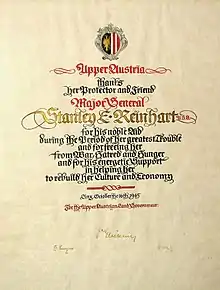 Upper Austria
thanks
her Protector and Friend
Major General
Stanley E. Reinhart
for his noble Aid
during the Period of her greatest Trouble
and for freeing her
from War, Hatred and Hunger
and for his energetic Support
in helping her
to rebuild her Culture and Economy
Linz, October 1945
For the Upper Austrian Land Government